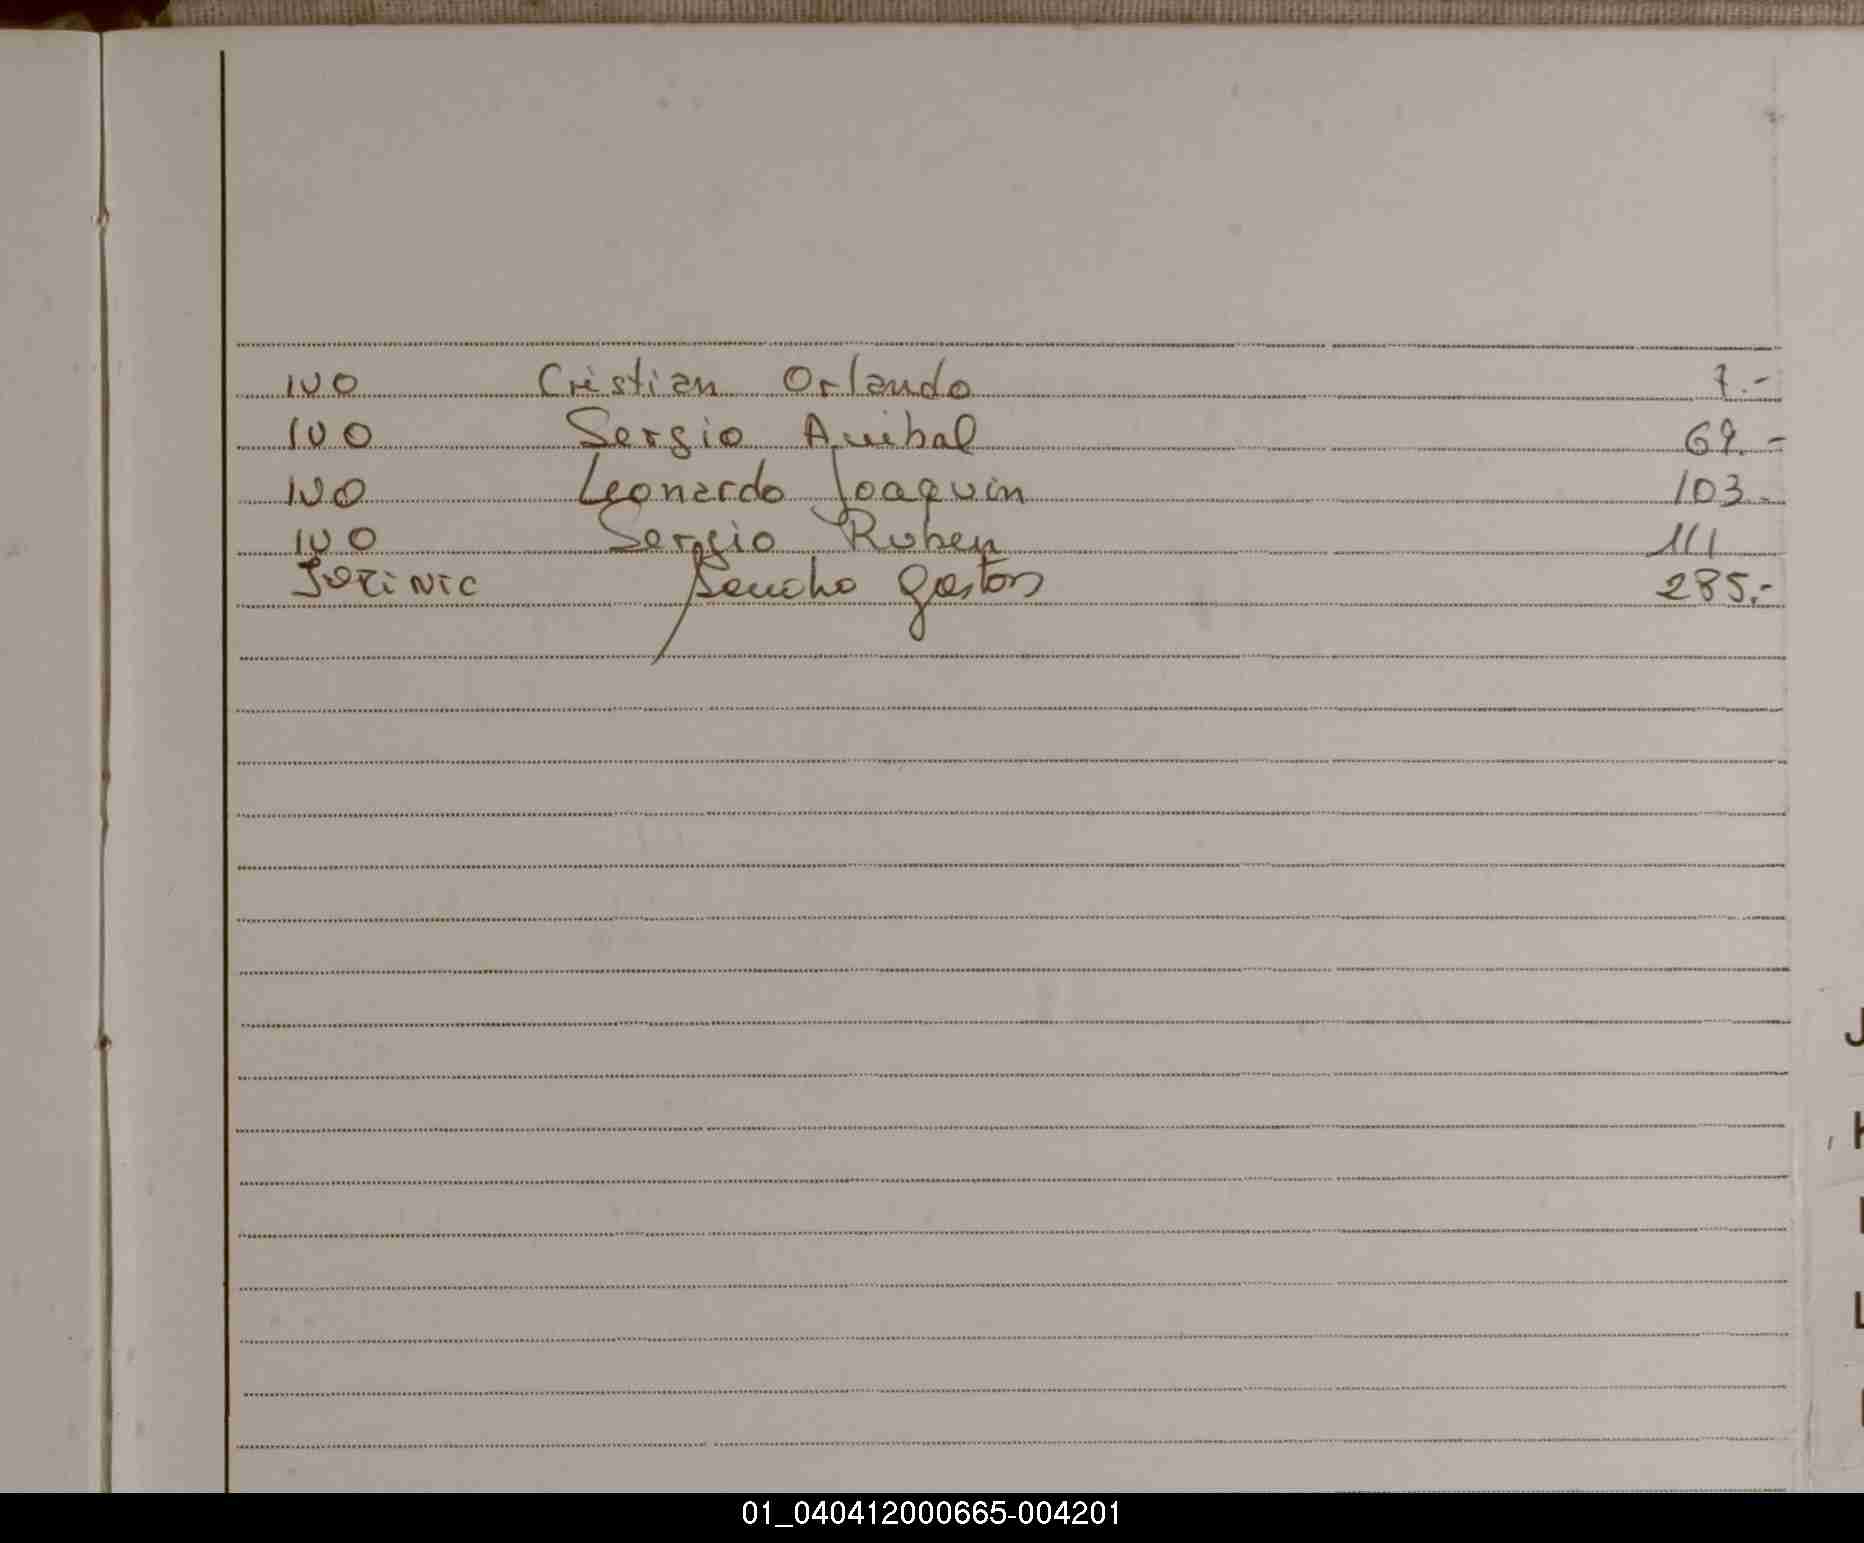 IVO Cristian Orlando 7.-
IVO Sergio Anibal 69.-
IVO Leonardo Joaquin 103.-
IVO Sergio Ruben 111
Gaston 285.-
J
K
L
01_040412000665-004201